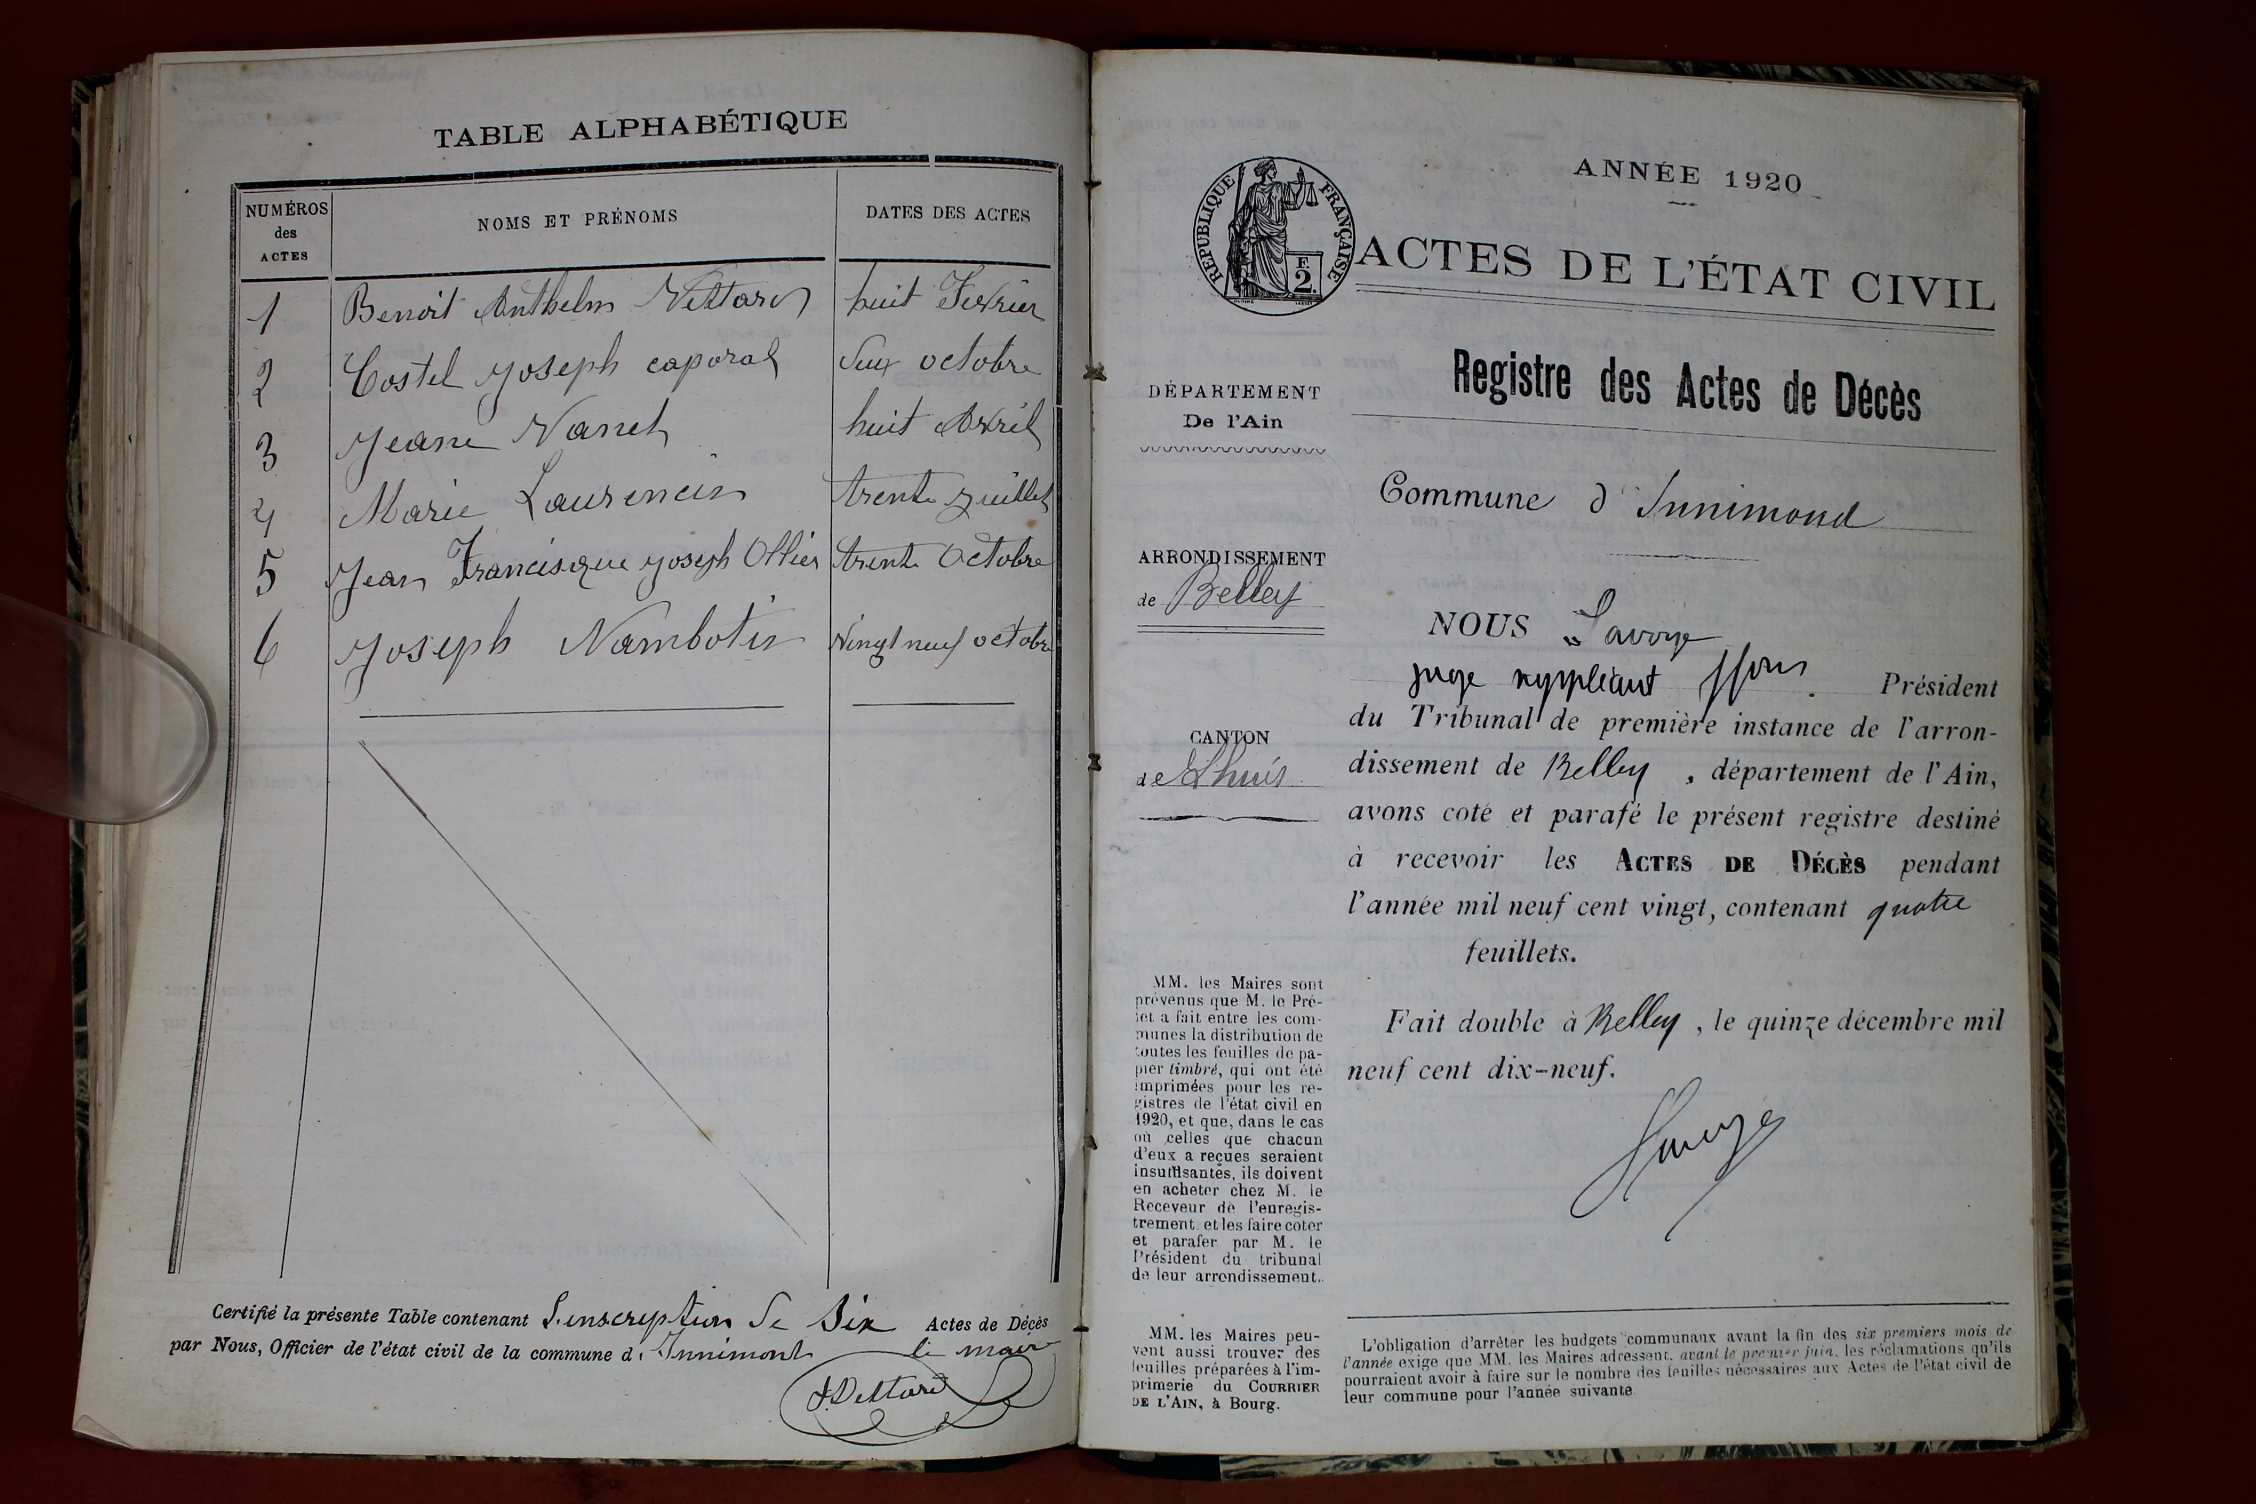 TABLE ALPHABÉTIQUE
NUMÉROS des ACTES
NOMS ET PRÉNOMS
DATES DES ACTES
1 Benoit Anthelm huit Fevrier
2 Costel Joseph caporal octobre
3 Jeane Nanet huit Avril
4 Marie Laurencin trente Juillet
5 Jean Francisque Joseph Ollier trente Octobre
6 Joseph Nambotin Vingt neuf octobre
Certifié la présente Table contenant L'inscription de Six Actes de Décès
par Nous, Officier de l'état civil de la commune d'Innimont le maire
ANNÉE 1920
RÉPUBLIQUE FRANÇAISE
F. 2.
ACTES DE L'ÉTAT CIVIL
Registre des Actes de Décès
DÉPARTEMENT
De l'Ain
Commune d'Innimond
ARRONDISSEMENT
de Belley
CANTON
de Lhuis
NOUS Savoye
juge suppléant Président
du Tribunal de première instance de l'arron-
dissement de Belley, département de l'Ain,
avons coté et parafé le présent registre destiné
à recevoir les ACTES DE DÉCÈS pendant
l'année mil neuf cent vingt, contenant quatre
feuillets.
Fait double à Belley, le quinze décembre mil
neuf cent dix-neuf.
MM. les Maires sont
prévenus que M. le Pré-
fet a fait entre les com-
munes la distribution de
toutes les feuilles de pa-
pier timbré, qui ont été
imprimées pour les re-
gistres de l'état civil en
1920, et que, dans le cas
où celles que chacun
d'eux a reçues seraient
insuffisantes, ils doivent
en acheter chez M. le
Receveur de l'enregis-
trement et les faire coter
et parafer par M. le
Président du tribunal
de leur arrondissement.
MM. les Maires peu-
vent aussi trouver des
feuilles préparées à l'im-
primerie du COURRIER
DE L'AIN, à Bourg.
L'obligation d'arrêter les budgets communaux avant la fin des six premiers mois de
l'année exige que MM. les Maires adressent, avant le premier juin, les réclamations qu'ils
pourraient avoir à faire sur le nombre des feuilles nécessaires aux Actes de l'état civil de
leur commune pour l'année suivante.